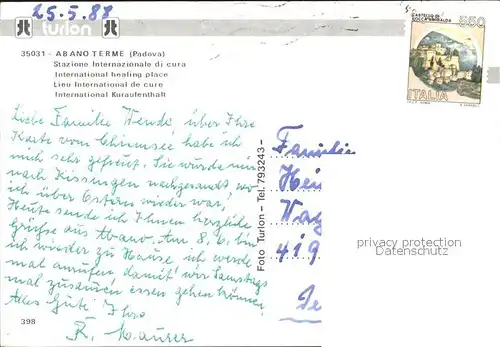 25.5.88
turlon
35031 - ABANO TERME (Padova)
Stazione Internazionale di cura
International healing place
Lieu International de cure
International Kuraufenthalt
CASTELLO DI
ROCCA SINIBALDA
550
ITALIA
Liebe Familie Wendt, über Ihre
Karte vom Chiemsee habe ich
mich sehr gefreut. Sie wurde mir
nach Kissingen nachgesandt, wo
ich über Ostern wieder war.
Heute sende ich Ihnen herzliche
Grüße aus Abano. Am 8.6. bin
ich wieder zu Hause, ich werde
mal anrufen damit wir Samstags
mal zusammen essen gehen können.
Alles Gute! Ihre
R. Maurer
Foto Turlon - Tel. 793243 -
Familie
Hei
419
privacy protection
Datenschutz
398